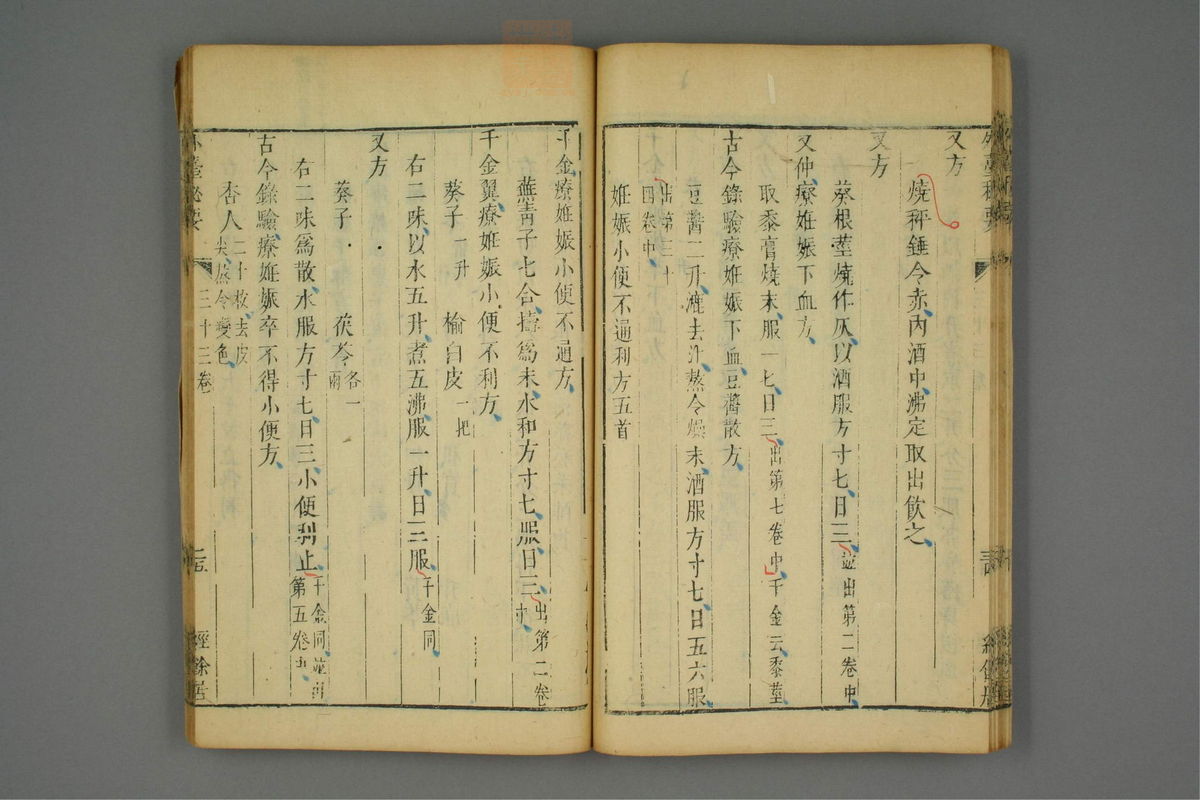 又方
燒秤錘令赤內酒中沸定取出飲之
又方
葵根莖燒作灰以酒服方寸匕日三並出第二卷中
又仲療姙娠下血方
取黍膏燒末服一匕日三出第七卷中千金云黍莖
古今錄驗療姙娠下血豆醬散方
豆醬二升漉去汁蒸令燥末酒服方寸匕日五六服
出第三十
四卷中
姙娠小便不通利方五首
千金療姙娠小便不通方
蕪菁子七合擣爲末水和方寸匕服日三出第二卷
中
千金翼療姙娠小便不利方
葵子一升 榆白皮一把
右二味以水五升煮五沸服一升日三服千金同
又方
葵子 茯苓各一
兩
右二味爲散水服方寸匕日三小便利止千金同並
第五卷
古今錄驗療姙娠卒不得小便方
杏人二十枚去皮
尖蒸令變色
外臺祕要
三十三卷
經餘居